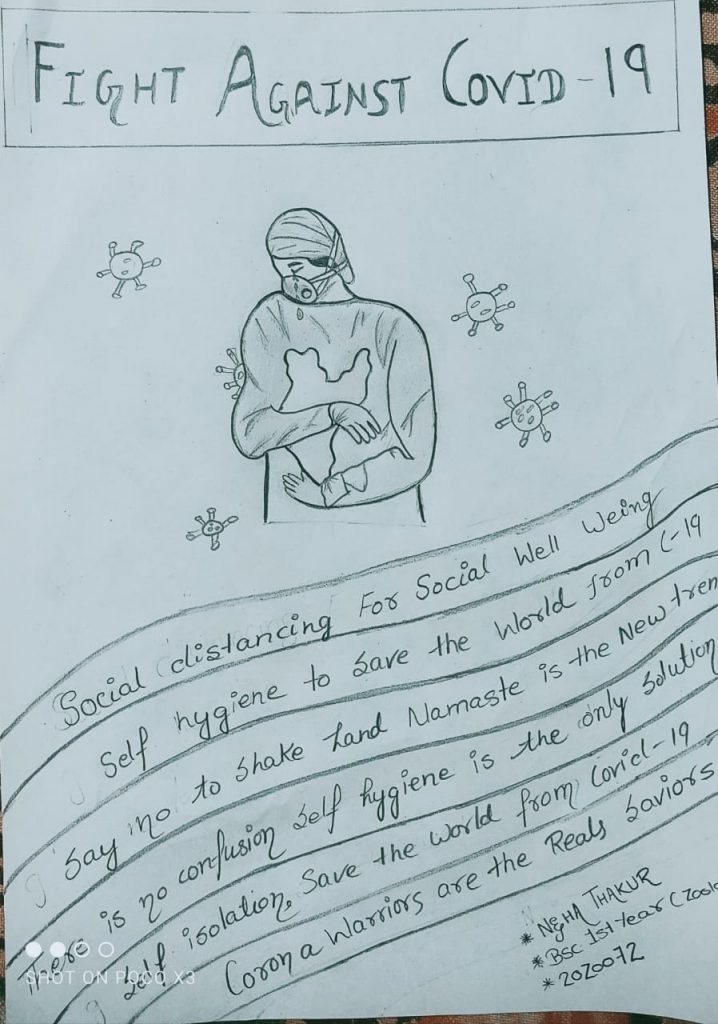 FIGHT AGAINST COVID-19
Social distancing For Social Well Weing
Self hygiene to save the World from C-19
Say no to shake hand Namaste is the New tren
There is no confusion self hygiene is the only solution
Self isolation, Save the world from Covid-19
Corona Warriors are the Reals Saviors
* NEHA THAKUR
* BSC 1st Year (Zoolo
* 2020072
SHOT ON POCO X3